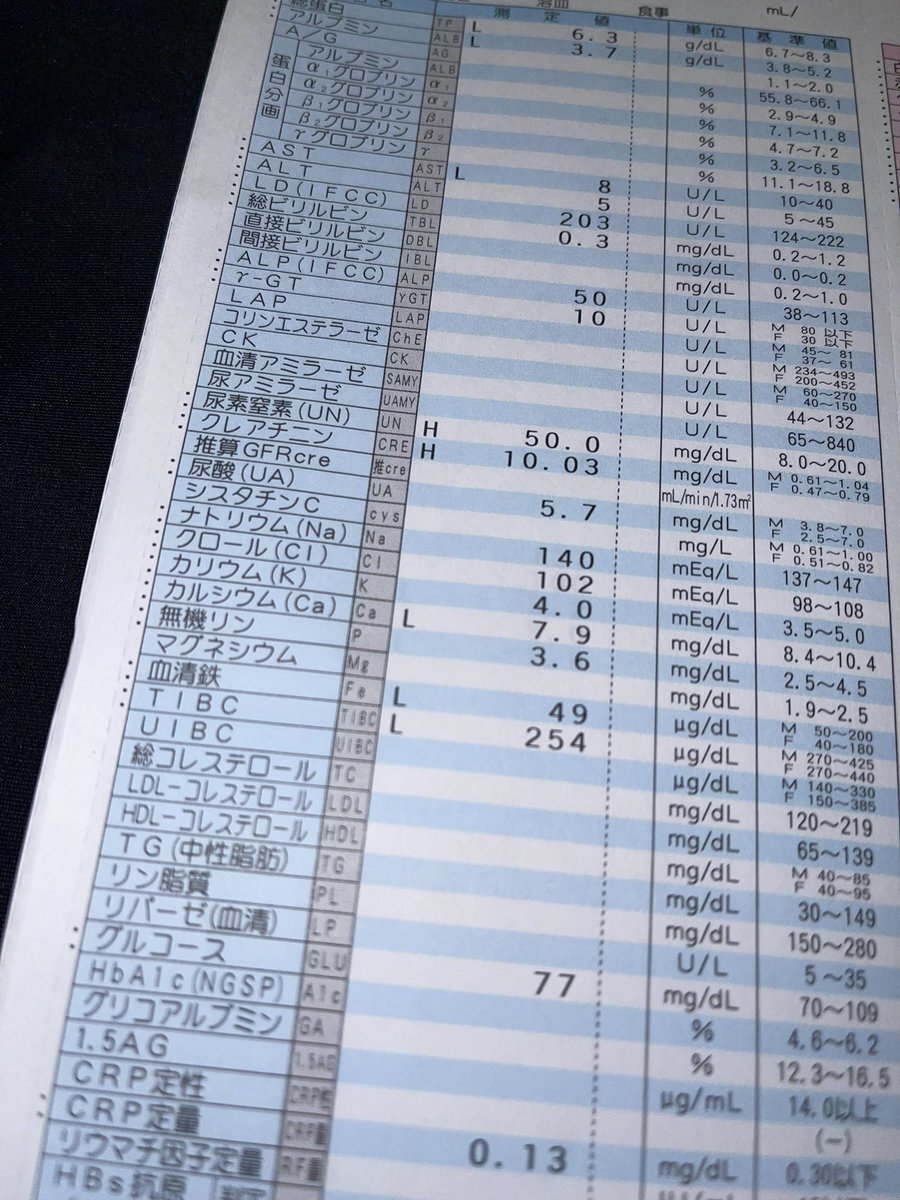 名 測定値 溶血 食事 mL/
単位 基準値
総蛋白 TP L 6.3 g/dL 6.7～8.3
アルブミン ALB L 3.7 g/dL 3.8～5.2
A/G AG 1.1～2.0
蛋白分画 アルブミン ALB % 55.8～66.1
α₁グロブリン α₁ % 2.9～4.9
α₂グロブリン α₂ % 7.1～11.8
β₁グロブリン β₁ % 4.7～7.2
β₂グロブリン β₂ % 3.2～6.5
γグロブリン γ % 11.1～18.8
AST AST L 8 U/L 10～40
ALT ALT 5 U/L 5～45
LD(IFCC) LD 203 U/L 124～222
総ビリルビン TBL 0.3 mg/dL 0.2～1.2
直接ビリルビン DBL mg/dL 0.0～0.2
間接ビリルビン IBL mg/dL 0.2～1.0
ALP(IFCC) ALP 50 U/L 38～113
γ-GT γGT 10 U/L M 80以下 F 30以下
LAP LAP U/L M 45～81 F 37～61
コリンエステラーゼ ChE U/L M 234～493 F 200～452
CK CK U/L M 60～270 F 40～150
血清アミラーゼ SAMY U/L 44～132
尿アミラーゼ UAMY U/L 65～840
尿素窒素(UN) UN H 50.0 mg/dL 8.0～20.0
クレアチニン CRE H 10.03 mg/dL M 0.61～1.04 F 0.47～0.79
推算GFRcre 推cre mL/min/1.73㎡
尿酸(UA) UA 5.7 mg/dL M 3.8～7.0 F 2.5～7.0
シスタチンC cys mg/L M 0.61～1.00 F 0.51～0.82
ナトリウム(Na) Na 140 mEq/L 137～147
クロール(Cl) Cl 102 mEq/L 98～108
カリウム(K) K 4.0 mEq/L 3.5～5.0
カルシウム(Ca) Ca L 7.9 mg/dL 8.4～10.4
無機リン P 3.6 mg/dL 2.5～4.5
マグネシウム Mg mg/dL 1.9～2.5
血清鉄 Fe L 49 μg/dL M 50～200 F 40～180
TIBC TIBC L 254 μg/dL M 270～425 F 270～440
UIBC UIBC μg/dL M 140～330 F 150～385
総コレステロール TC mg/dL 120～219
LDL-コレステロール LDL mg/dL 65～139
HDL-コレステロール HDL mg/dL M 40～85 F 40～95
TG(中性脂肪) TG mg/dL 30～149
リン脂質 PL mg/dL 150～280
リパーゼ(血清) LP U/L 5～35
グルコース GLU 77 mg/dL 70～109
HbA1c(NGSP) A1c % 4.6～6.2
グリコアルブミン GA % 12.3～16.5
1.5AG 1.5AG μg/mL 14.0以上
CRP定性 CRP性 (-)
CRP定量 CRP量 0.13 mg/dL 0.30以下
リウマチ因子定量 RF量
HBs抗原 判定